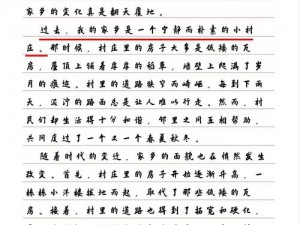 家乡的变化真是翻天覆地。
过去，我的家乡是一个宁静而朴素的小村
庄。那时候，村庄里的房子大多是低矮的瓦
房，屋顶上铺着厚厚的茅草，墙壁上布满了岁
月的痕迹。村里的道路狭窄而崎岖，每到下雨
天，泥泞的路面总是让人难以行走。然而，村
民们却生活得十分和谐，邻里之间互相帮助，
共同度过了一个又一个春夏秋冬。
随着时代的变迁，家乡的面貌也在悄然发生
改变。首先，村庄里的房子开始逐渐升高，一
栋栋小洋楼拔地而起，取代了那些低矮的瓦
房。接着，村里的道路也得到了拓宽和硬化，